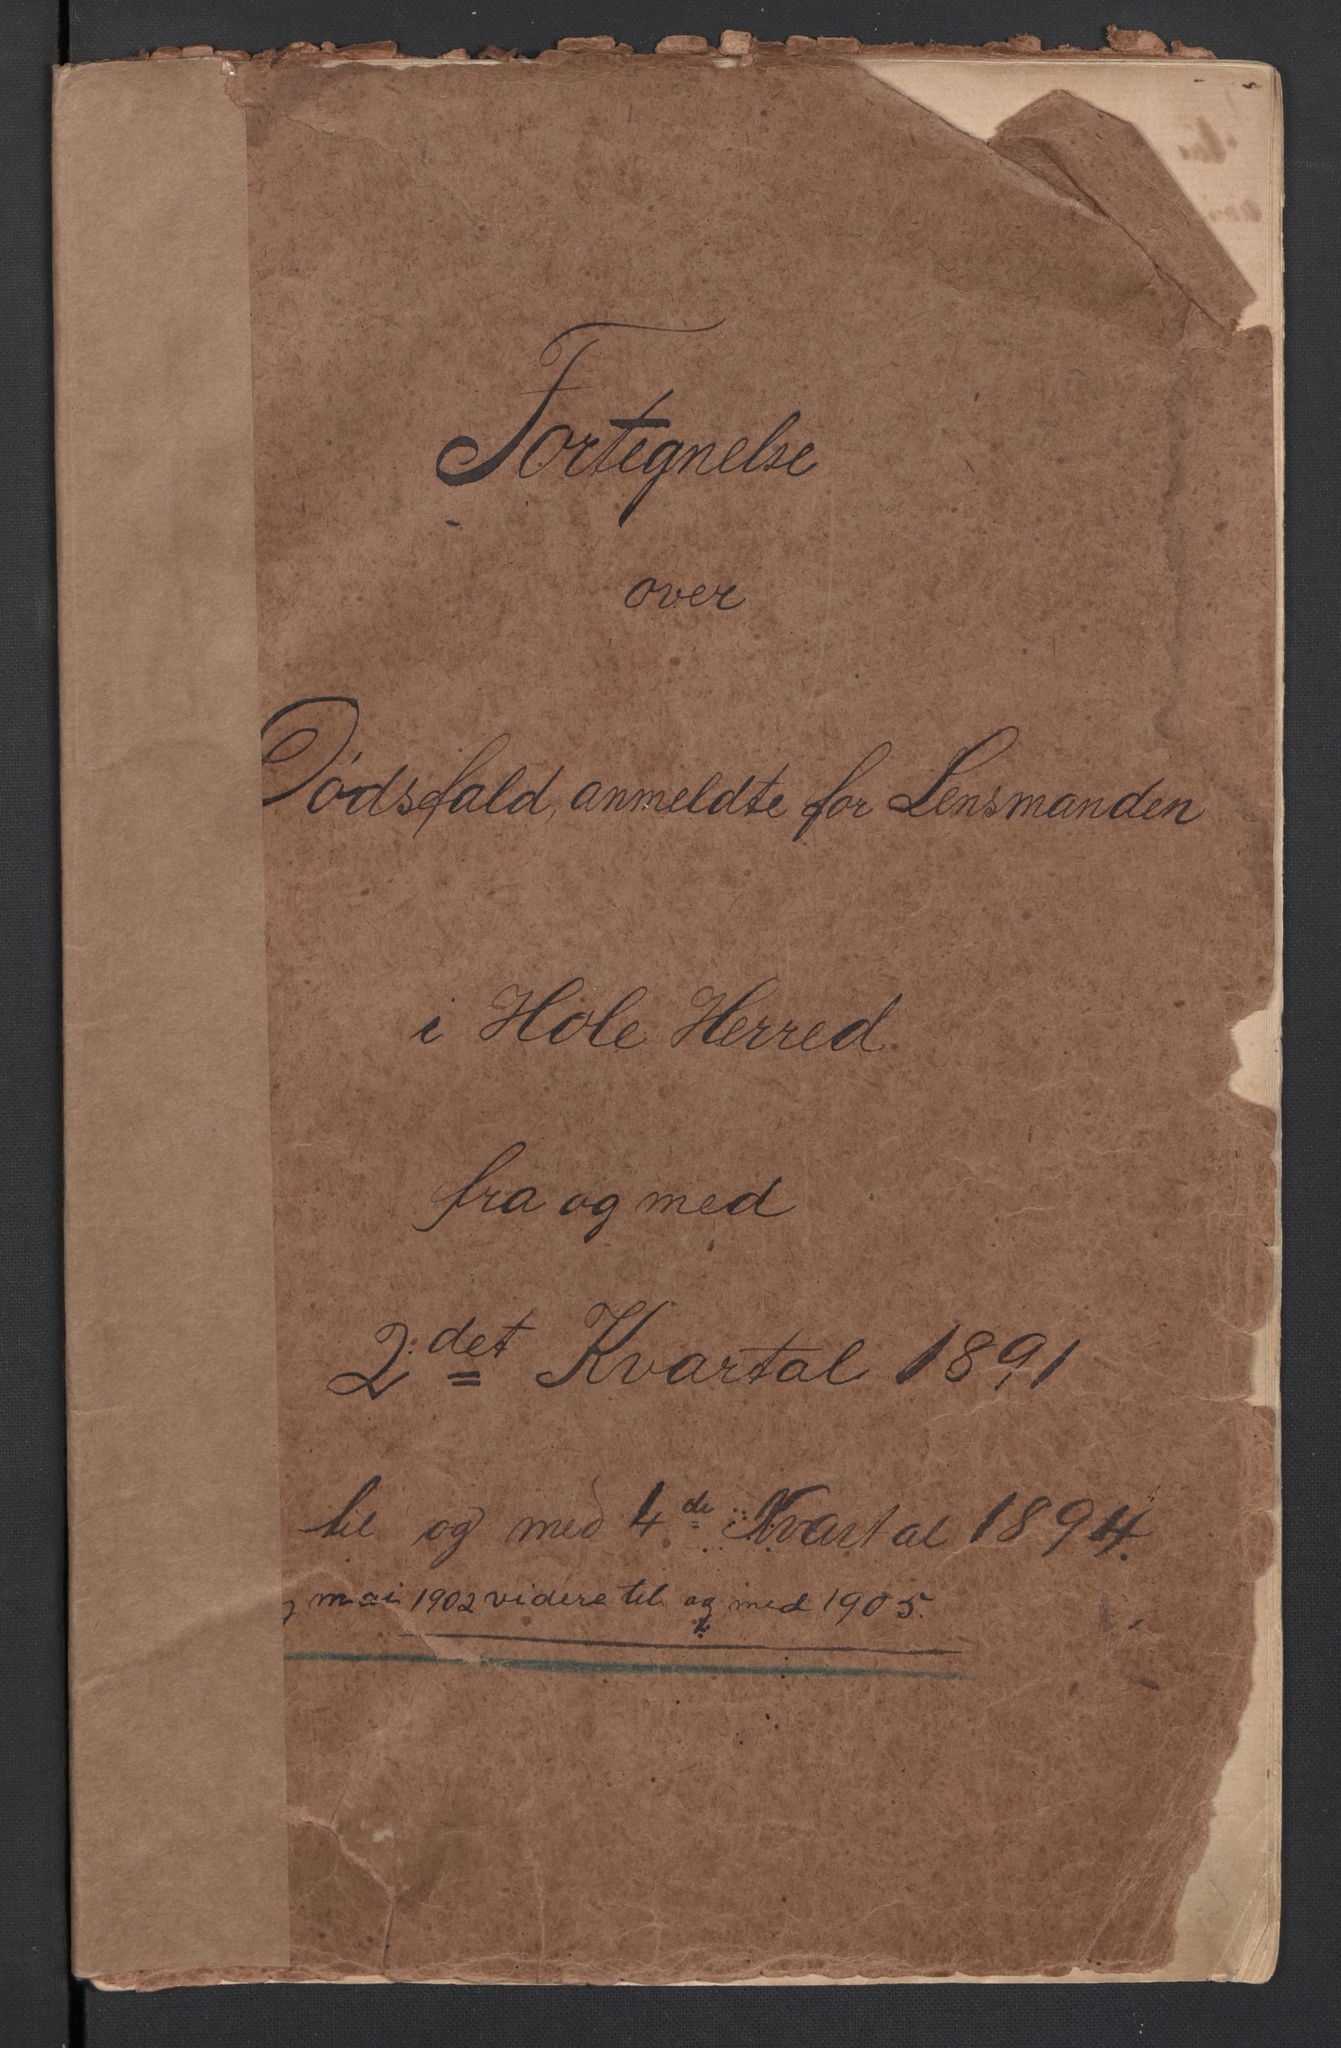 Fortegnelse
over
Dödsfald, anmeldte for Lensmanden
i Hole Herred
fra og med
2:det Kvartal 1891
til og med 4de Kvartal 1894.
mai 1902 videre til og med 1905.